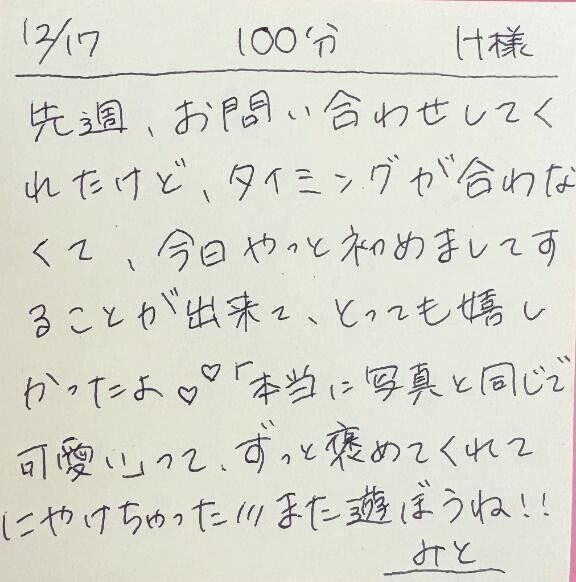 12/17 100分 H様
先週、お問い合わせしてく
れたけど、タイミングが合わな
くて、今日やっと初めましてす
ることが出来て、とっても嬉し
かったよ♡♡「本当に写真と同じで
可愛い」って、ずっと褒めてくれて
にやけちゃった///また遊ぼうね!!
みと